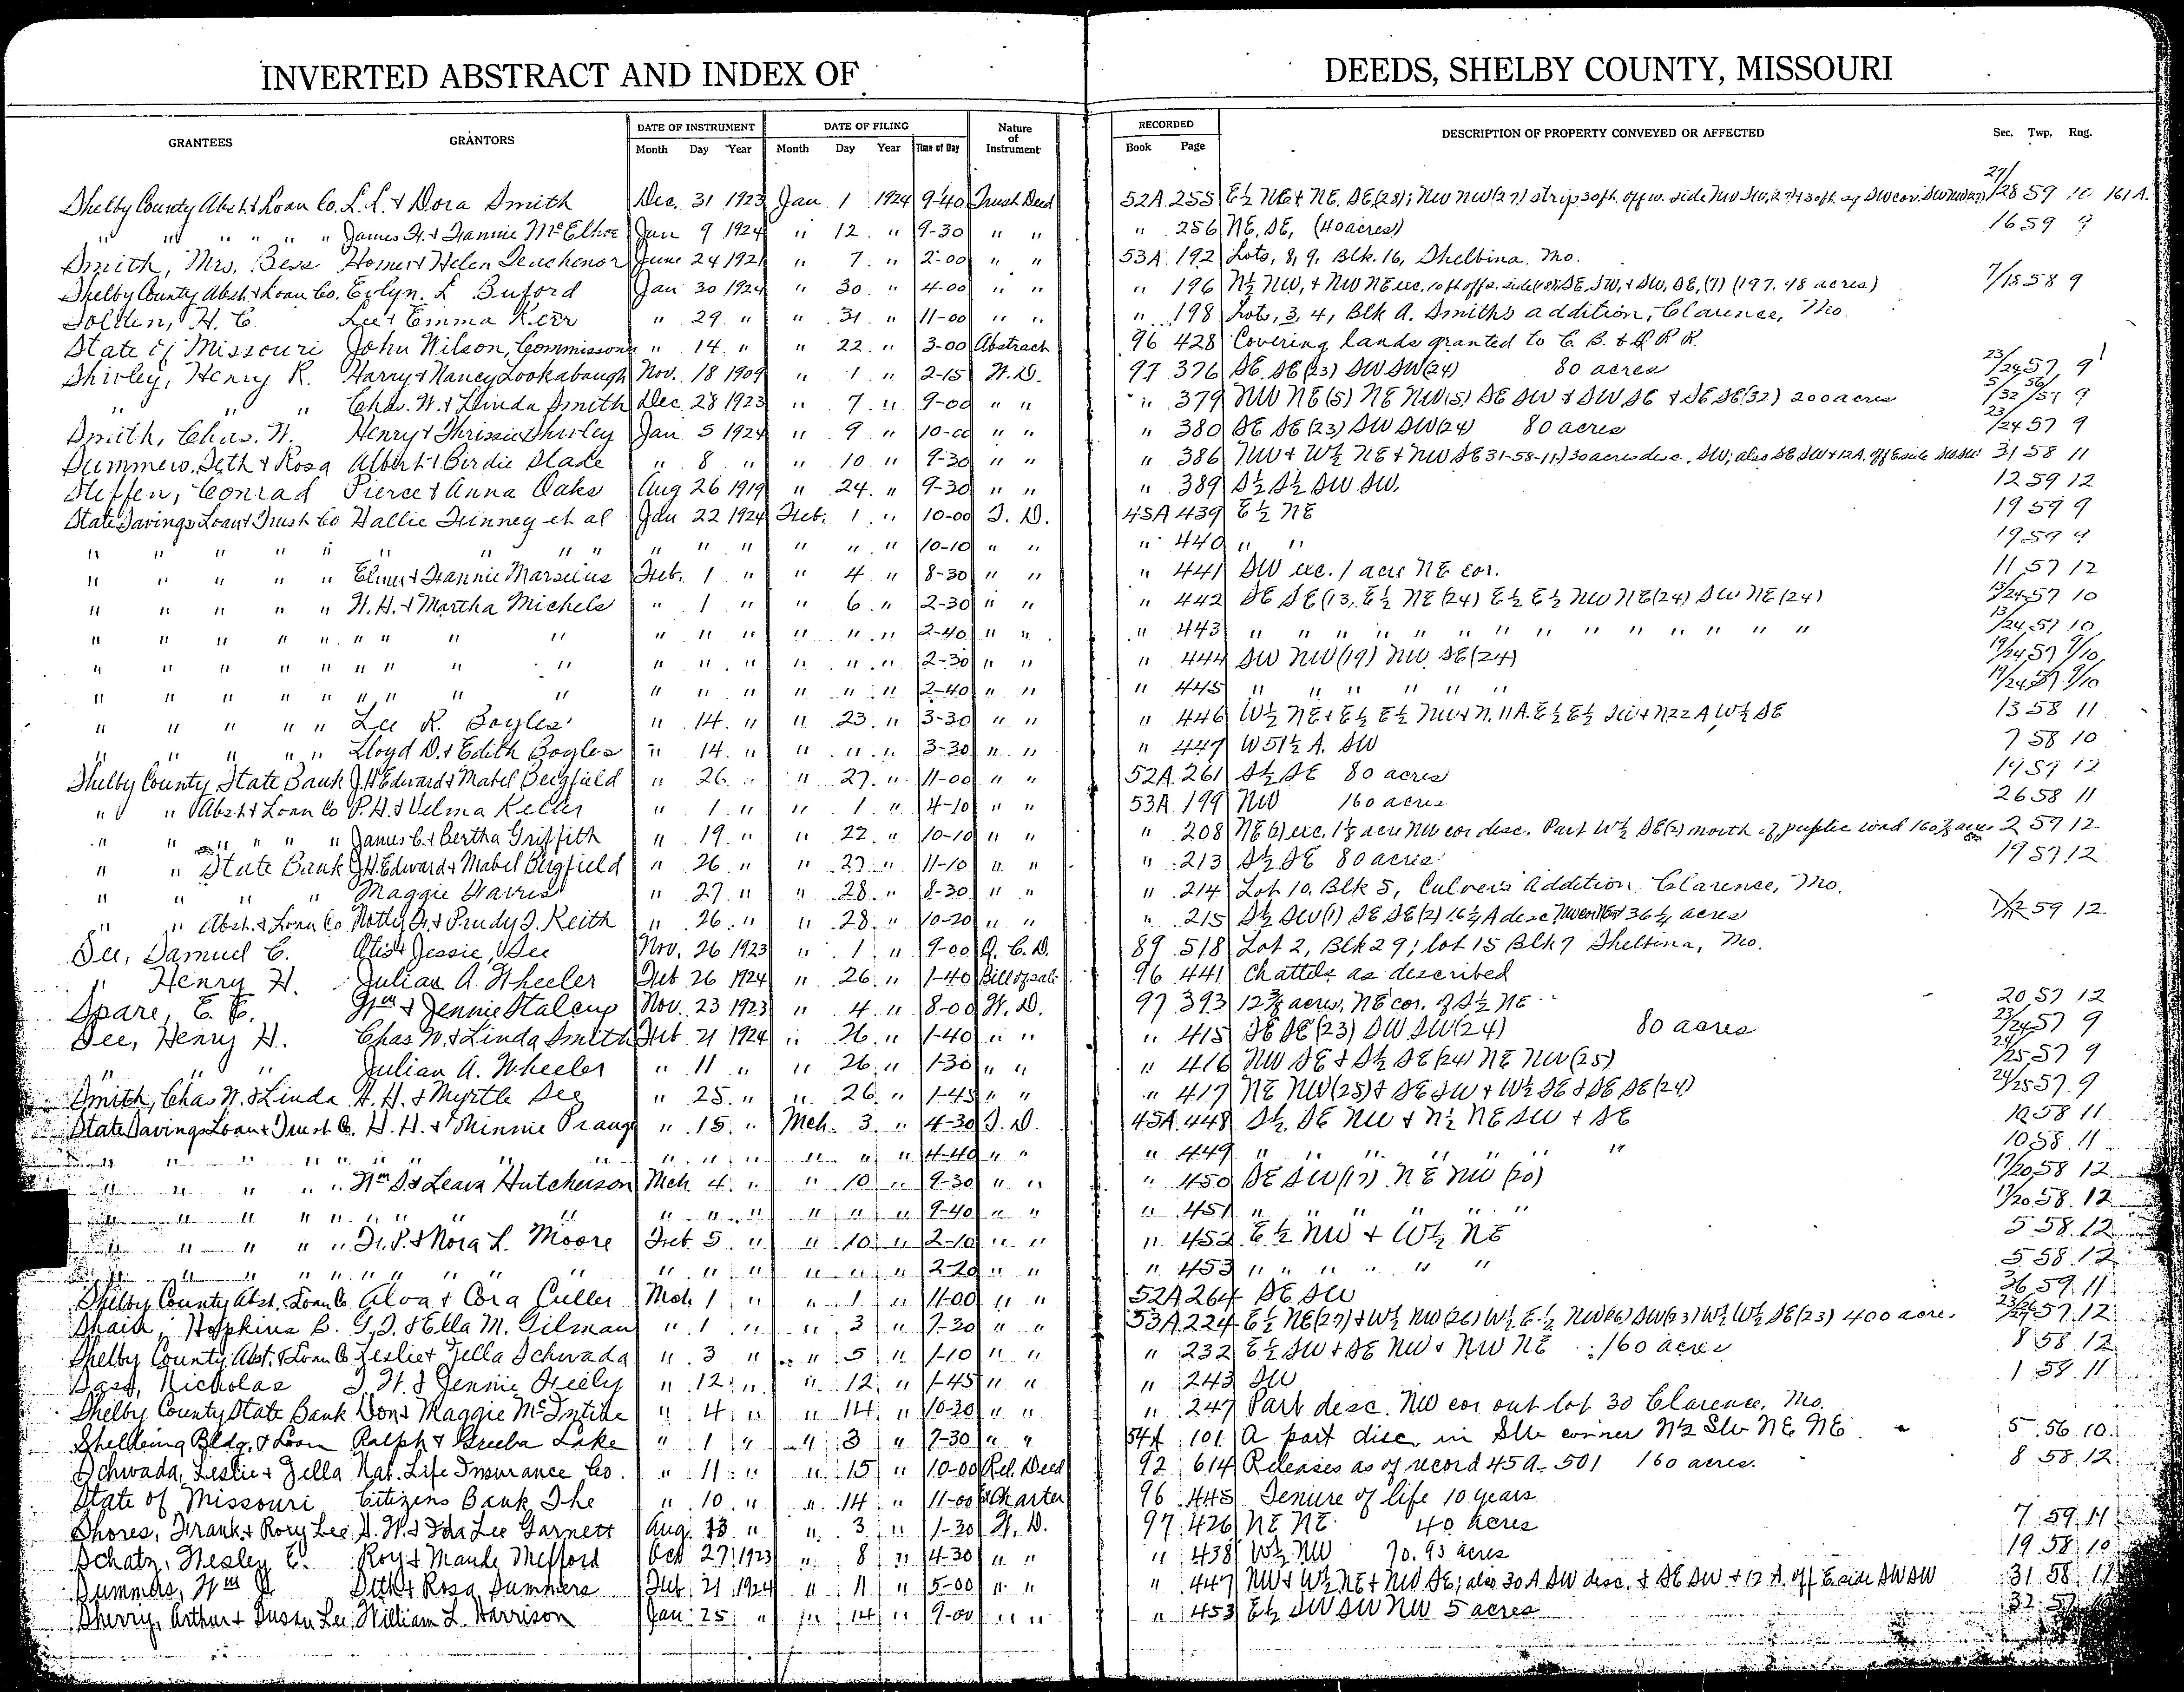 INVERTED ABSTRACT AND INDEX OF DEEDS, SHELBY COUNTY, MISSOURI
GRANTEES GRANTORS DATE OF INSTRUMENT DATE OF FILING Nature of Instrument RECORDED DESCRIPTION OF PROPERTY CONVEYED OR AFFECTED Sec. Twp. Rng.
Month Day Year Month Day Year Time of Day Book Page
Shelby County Abst. & Loan Co. L. L. & Dora Smith Dec. 31 1923 Jan 1 1924 9-40 Trust Deed 52A 255 E½ NE & NE. SE(28); NW NW(27) strip 30ft. off w. side 27/28 59 10 161 A.
" " " " " James H. & Fannie McElhoe Jan 9 1924 " 12 " 9-30 " " " 256 NE, SE, (40 acres) 16 59 9
Smith, Mrs. Bess Homer & Helen Teachenor June 24 1921 " 7 " 2-00 " " 53A 192 Lots, 8, 9, Blk. 16, Shelbina, Mo.
Shelby County Abst. & Loan Co. Evlyn. L Buford Jan 30 1924 " 30 " 4-00 " " " 196 N½ NW, & NW NE exc. 10 ft off side(18) SE, SW, & SW, SE, (7) (197.48 acres) 7/18 58 9
Solden, H. C. Lee & Emma Kerr " 29 " " 31 " 11-00 " " " 198 Lots, 3, 4, Blk A. Smiths addition, Clarence, Mo.
State of Missouri John Wilson, Commissoner " 14 " " 22 " 3-00 Abstract 96 428 Covering lands granted to C. B. & Q R R.
Shirley, Henry R. Harry & Nancy Lookabaugh Nov. 18 1909 " 1 " 2-15 W. D. 97 376 SE. SE(23) SW SW(24) 80 acres 23/24 57 9
" " " Chas. W. & Linda Smith Dec 28 1923 " 7 " 9-00 " " " 379 NW NE(5) NE NW(5) SE SW & SW SE & SE SE(32) 200 acres 5/32 56/57 9
Smith, Chas. W. Henry & Thrissie Shirley Jan 5 1924 " 9 " 10-00 " " " 380 SE SE(23) SW SW(24) 80 acres 23/24 57 9
Summers, Seth & Rosa Albert & Birdie Slade " 8 " " 10 " 9-30 " " " 386 NW & W½ NE & NW SE 31-58-11;) 30 acres desc. SW; also SE SW & 12A. off E side SWSW 31 58 11
Steffen, Conrad Pierce & Anna Oaks Aug 26 1919 " 24 " 9-30 " " " 389 S½ S½ SW SW. 12 59 12
State Savings Loan & Trust Co Hallie Finney et al Jan 22 1924 Feb. 1 " 10-00 T. D. 45A 439 E½ NE 19 59 9
" " " " " " " " " " " " " " " 10-10 " " " 440 " " 19 59 9
" " " " " Elmer & Fannie Marseius Feb. 1 " " 4 " 8-30 " " " 441 SW exc. 1 acre NE cor. 11 57 12
" " " " " W. H. & Martha Michels " 1 " " 6 " 2-30 " " " 442 SE SE(13, E½ NE(24) E½ E½ NW NE(24) SW NE(24) 13/24 57 10
" " " " " " " " " " " " " " " 2-40 " " " 443 " " " " " " " " " " " " " 13/24 57 10
" " " " " " " " " " " " " " " 2-30 " " " 444 SW NW(19) NW. SE(24) 19/24 57 9/10
" " " " " " " " " " " " " " " 2-40 " " " 445 " " " " " " 19/24 57 9/10
" " " " " Lee R. Bayles " 14 " " 23 " 3-30 " " " 446 W½ NE & E½ E½ NW & N. 11A. E½ E½ SW & N22 A W½ SE 13 58 11
" " " " " Lloyd D. & Edith Bayles " 14 " " " " 3-30 " " " 447 W 51½ A. SW 7 58 10
Shelby County State Bank J. H. Edward & Mabel Bergfield " 26 " " 27 " 11-00 " " 52A 261 S½ SE 80 acres 19 57 12
" " Abst. & Loan Co P. H. & Velma Keller " 1 " " 1 " 4-10 " " 53A 199 NW 160 acres 26 58 11
" " " " " James C. & Bertha Griffith " 19 " " 22 " 10-10 " " " 208 NE(2) exc. 1½ acre NW cor desc. Part W½ SE(2) north of public road 2 59 12
" " State Bank J. H. Edward & Mabel Bergfield " 26 " " 27 " 11-10 " " " 213 S½ SE 80 acres 19 57 12
" " " " Maggie Harris " 27 " " 28 " 8-30 " " " 214 Lot 10, Blk 5, Culvers Addition, Clarence, Mo.
" " Abst. & Loan Co Notley & Prudy J. Keith " 26 " " 28 " 10-20 " " " 215 S½ SW(1) SE SE(2) 16½ A desc 36¼ acres 1/2 59 12
See, Samuel C. Otis & Jessie, See Nov. 26 1923 " 1 " 9-00 Q. C. D. 89 518 Lot 2, Blk 29; lot 15 Blk 7 Shelbina, Mo.
" Henry H. Julian A. Wheeler Feb 26 1924 " 26 " 1-40 Bill of sale 96 441 Chattels as described
Spare, E. E. Wm & Jennie Stalcup Nov. 23 1923 " 4 " 8-00 W. D. 97 393 12⅜ acres, NE cor. of S½ NE 20 57 12
See, Henry H. Chas W. & Linda Smith Feb 21 1924 " 26 " 1-40 " " " 415 SE SE(23) SW SW(24) 80 acres 23/24 57 9
" " " Julian A. Wheeler " 11 " " 26 " 1-30 " " " 416 NW SE & S½ SE(24) NE NW(25) 24/25 57 9
Smith, Chas W. & Linda H. H. & Myrtle See " 25 " " 26 " 1-45 " " " 417 NE NW(25) & SE SW & W½ SE & SE SE(24) 24/25 57 9
State Savings Loan & Trust Co. H. H. & Minnie Prange " 15 " Mch. 3 " 4-30 T. D. 45A 448 S½ SE NW & N½ NE SW & SE 10 58 11
" " " " " " " " " " " " " " 4-40 " " " 449 " " " " " " " 10 58 11
" " " " " Wm S. & Leava Hutcherson Mch. 4 " " 10 " 9-30 " " " 450 SE SW(17) NE NW (20) 17/20 58 12
" " " " " " " " " " " " " " 9-40 " " " 451 " " " " " " 17/20 58 12
" " " " " Fr. P. & Nora L. Moore Feb. 5 " " 10 " 2-10 " " " 452 E½ NW & W½ NE 5 58 12
" " " " " " " " " " " " " " 2-20 " " " 453 " " " " " " 5 58 12
Shelby County Abst. & Loan Co Alva & Cora Culler Mch. 1 " " 1 " 11-00 " " 52A 264 SE SW 36 59 11
Shain, Hopkins B. G. T. & Ella M. Gilman " 1 " " 3 " 7-30 " " 53A 224 E½ NE(27) & W½ NW(26) W½ E½ NW(26) SW(23) W½ W½ SE(23) 400 acres 23/26/27 57 12
Shelby County Abst. & Loan Co Leslie & Zella Schwada " 3 " " 5 " 1-10 " " " 232 E½ SW & SE NW & NW NE 160 acres 8 58 12
Sass, Nicholas J. W. & Jennie Feely " 12 " " 12 " 1-45 " " " 243 SW 1 58 11
Shelby County State Bank Don & Maggie McIntire " 4 " " 14 " 10-30 " " " 247 Part desc. NW cor out lot 30 Clarence, Mo.
Shelbina Bldg. & Loan Ralph & Greeba Lake " 1 " " 3 " 7-30 " " 54A 101 A part disc. in SW corner N½ SW NE NE 5 56 10
Schwada, Leslie & Zella Nat. Life Insurance Co. " 11 " " 15 " 10-00 Rel. Deed 92 614 Releases as of record 45A-501 160 acres. 8 58 12
State of Missouri Citizens Bank, The " 10 " " 14 " 11-00 Charter 96 445 Tenure of life 10 years
Shores, Frank & Rory Lee S. W. & Ida Lee Garnett Aug. 13 " " 3 " 1-30 W. D. 97 426 NE NE 40 acres 7 59 11
Schatz, Wesley E. Roy & Maude Mefford Oct 27 1923 " 8 " 4-30 " " " 438 W½ NW 70.93 acres 19 58 10
Summers, Wm Seth & Rosa Summers Feb. 21 1924 " 11 " 5-00 " " " 447 NW & W½ NE & NW SE; also 30 A SW desc. & SE SW & 12 A. off E side SW SW 31 58 11
Sherry, Arthur & Susan Lee William L. Harrison Jan 25 " " 14 " 9-00 " " " 453 E½ SW SW NW 5 acres 32 57